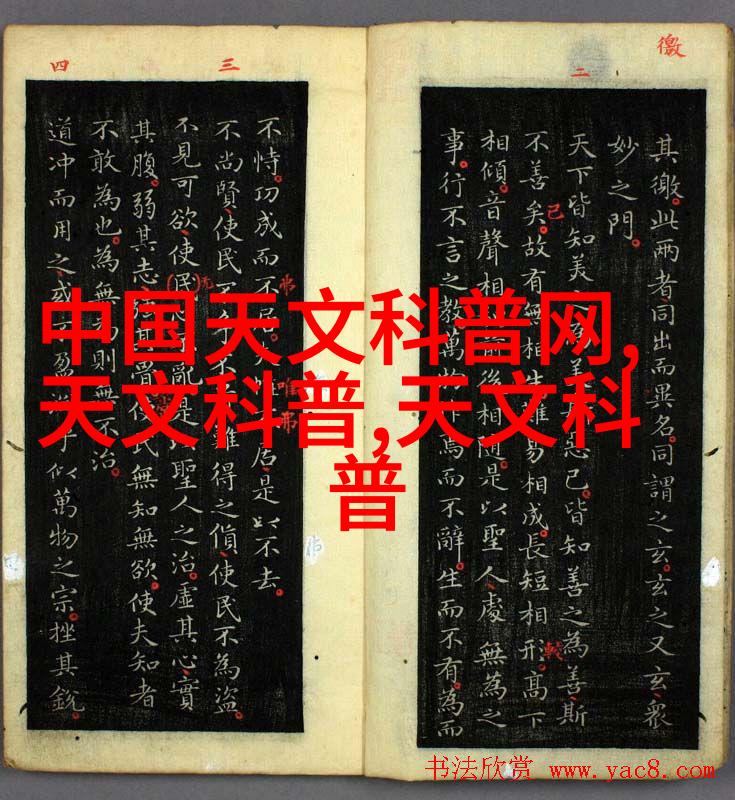 徼
二
其徼。此两者同出而異名。同謂之玄。玄之又玄。衆
妙之門。
天下皆知美為惡已。皆知善之為善斯
不善矣。故有無相生難易相成。長短相形。髙下
相傾。音聲相後相隨。是以聖人處無為之
事。行不言之教。萬焉而不辭。生而不有。為而
已
較
三
四
不恃。功成而不居。是以不去。
不尚賢使民不難得之貨使民不為盜。
不見可欲使民亂。是以聖人之治。虛其心實
其腹。弱其志強其骨使民無知無欲。使夫知者
不敢為也。為無則無不治。
道冲而用之或不盈乎似萬物之宗。挫其銳
弗
唯弗
无
中国天文科普网,
天文科普,天文科
普
书法欣赏 www.yac8.com